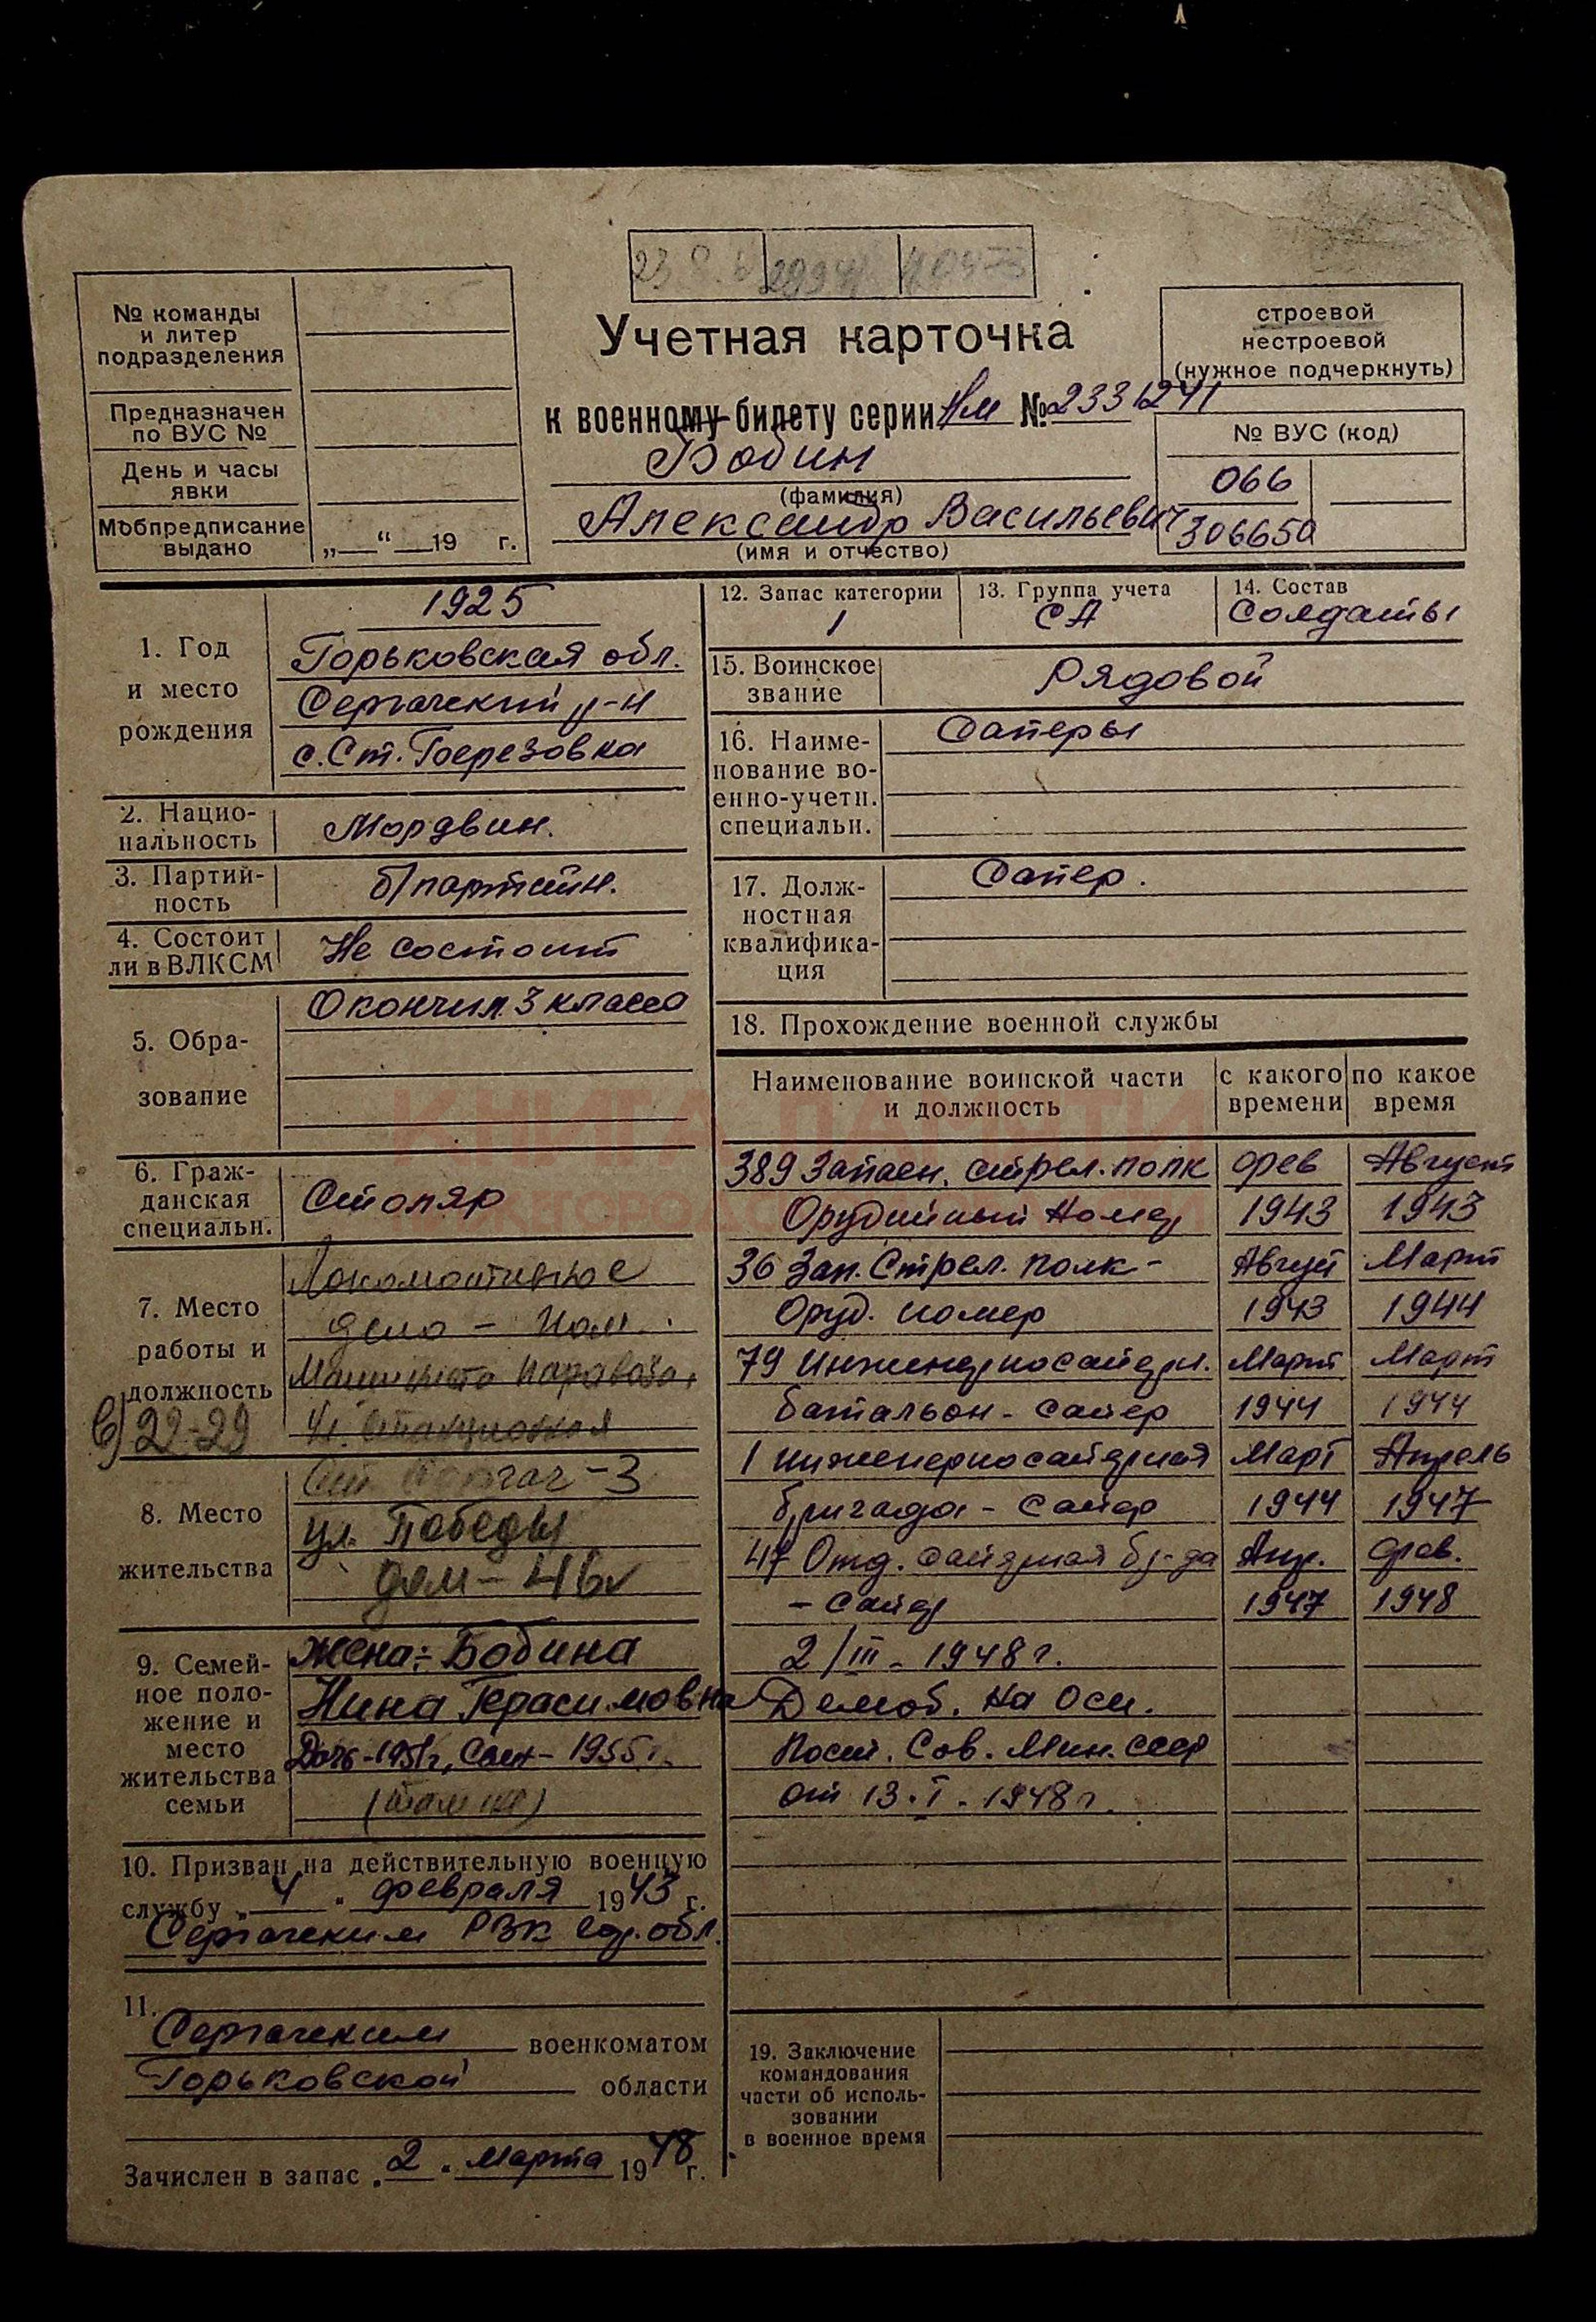 № команды
и литер
подразделения
Предназначен
по ВУС №
День и часы
явки
Мобпредписание
выдано
„ “ 19 г.
Учетная карточка
к военному билету серии НМ № 2331241
Бобин
(фамилия)
Александр Васильевич
(имя и отчество)
строевой
нестроевой
(нужное подчеркнуть)
№ ВУС (код)
066
306650
1. Год
и место
рождения
1925
Горьковская обл.
Сергачский р-н
с. Ст. Березовка
2. Нацио-
нальность
Мордвин.
3. Партий-
ность
б/партийн.
4. Состоит
ли в ВЛКСМ
Не состоит
5. Обра-
зование
Окончил 3 класса
6. Граж-
данская
специальн.
Столяр
7. Место
работы и
должность
22-29
Локомотивное
депо – пом.
Машиниста паровоза,
8. Место
жительства
- 3
ул. Победы
дом – 46
9. Семей-
ное поло-
жение и
место
жительства
семьи
жена:- Бобина
Нина Герасимовна
Дочь - 1951г, Сын - 1955г.
(там же)
10. Призван на действительную военную
службу „4“ февраля 1943 г.
Сергачским РВК Гор. обл.
11.
Сергачским военкоматом
Горьковской области
Зачислен в запас „2“ марта 1948 г.
12. Запас категории
1
13. Группа учета
СА
14. Состав
Солдаты
15. Воинское
звание
Рядовой
16. Наиме-
нование во-
енно-учетн.
специальн.
Саперы
17. Долж-
ностная
квалифика-
ция
Сапер.
18. Прохождение военной службы
Наименование воинской части
и должность
с какого
времени
по какое
время
389 Запасн. стрел. полк фев Август
Орудийный номер 1943 1943
36 Зап. Стрел. полк - Август Март
Оруд. номер 1943 1944
79 Инженерносаперн. Март Март
батальон - сапер 1944 1944
1 инженерносаперная Март Апрель
бригада - сапер 1944 1947
47 Отд. саперная бр-да Апр. фев.
- сапер 1947 1948
2/III - 1948 г.
Демоб. на осн.
Пост. Сов. Мин. СССР
от 13.I.1948 г.
19. Заключение
командования
части об исполь-
зовании
в военное время
КНИГА ПАМЯТИ